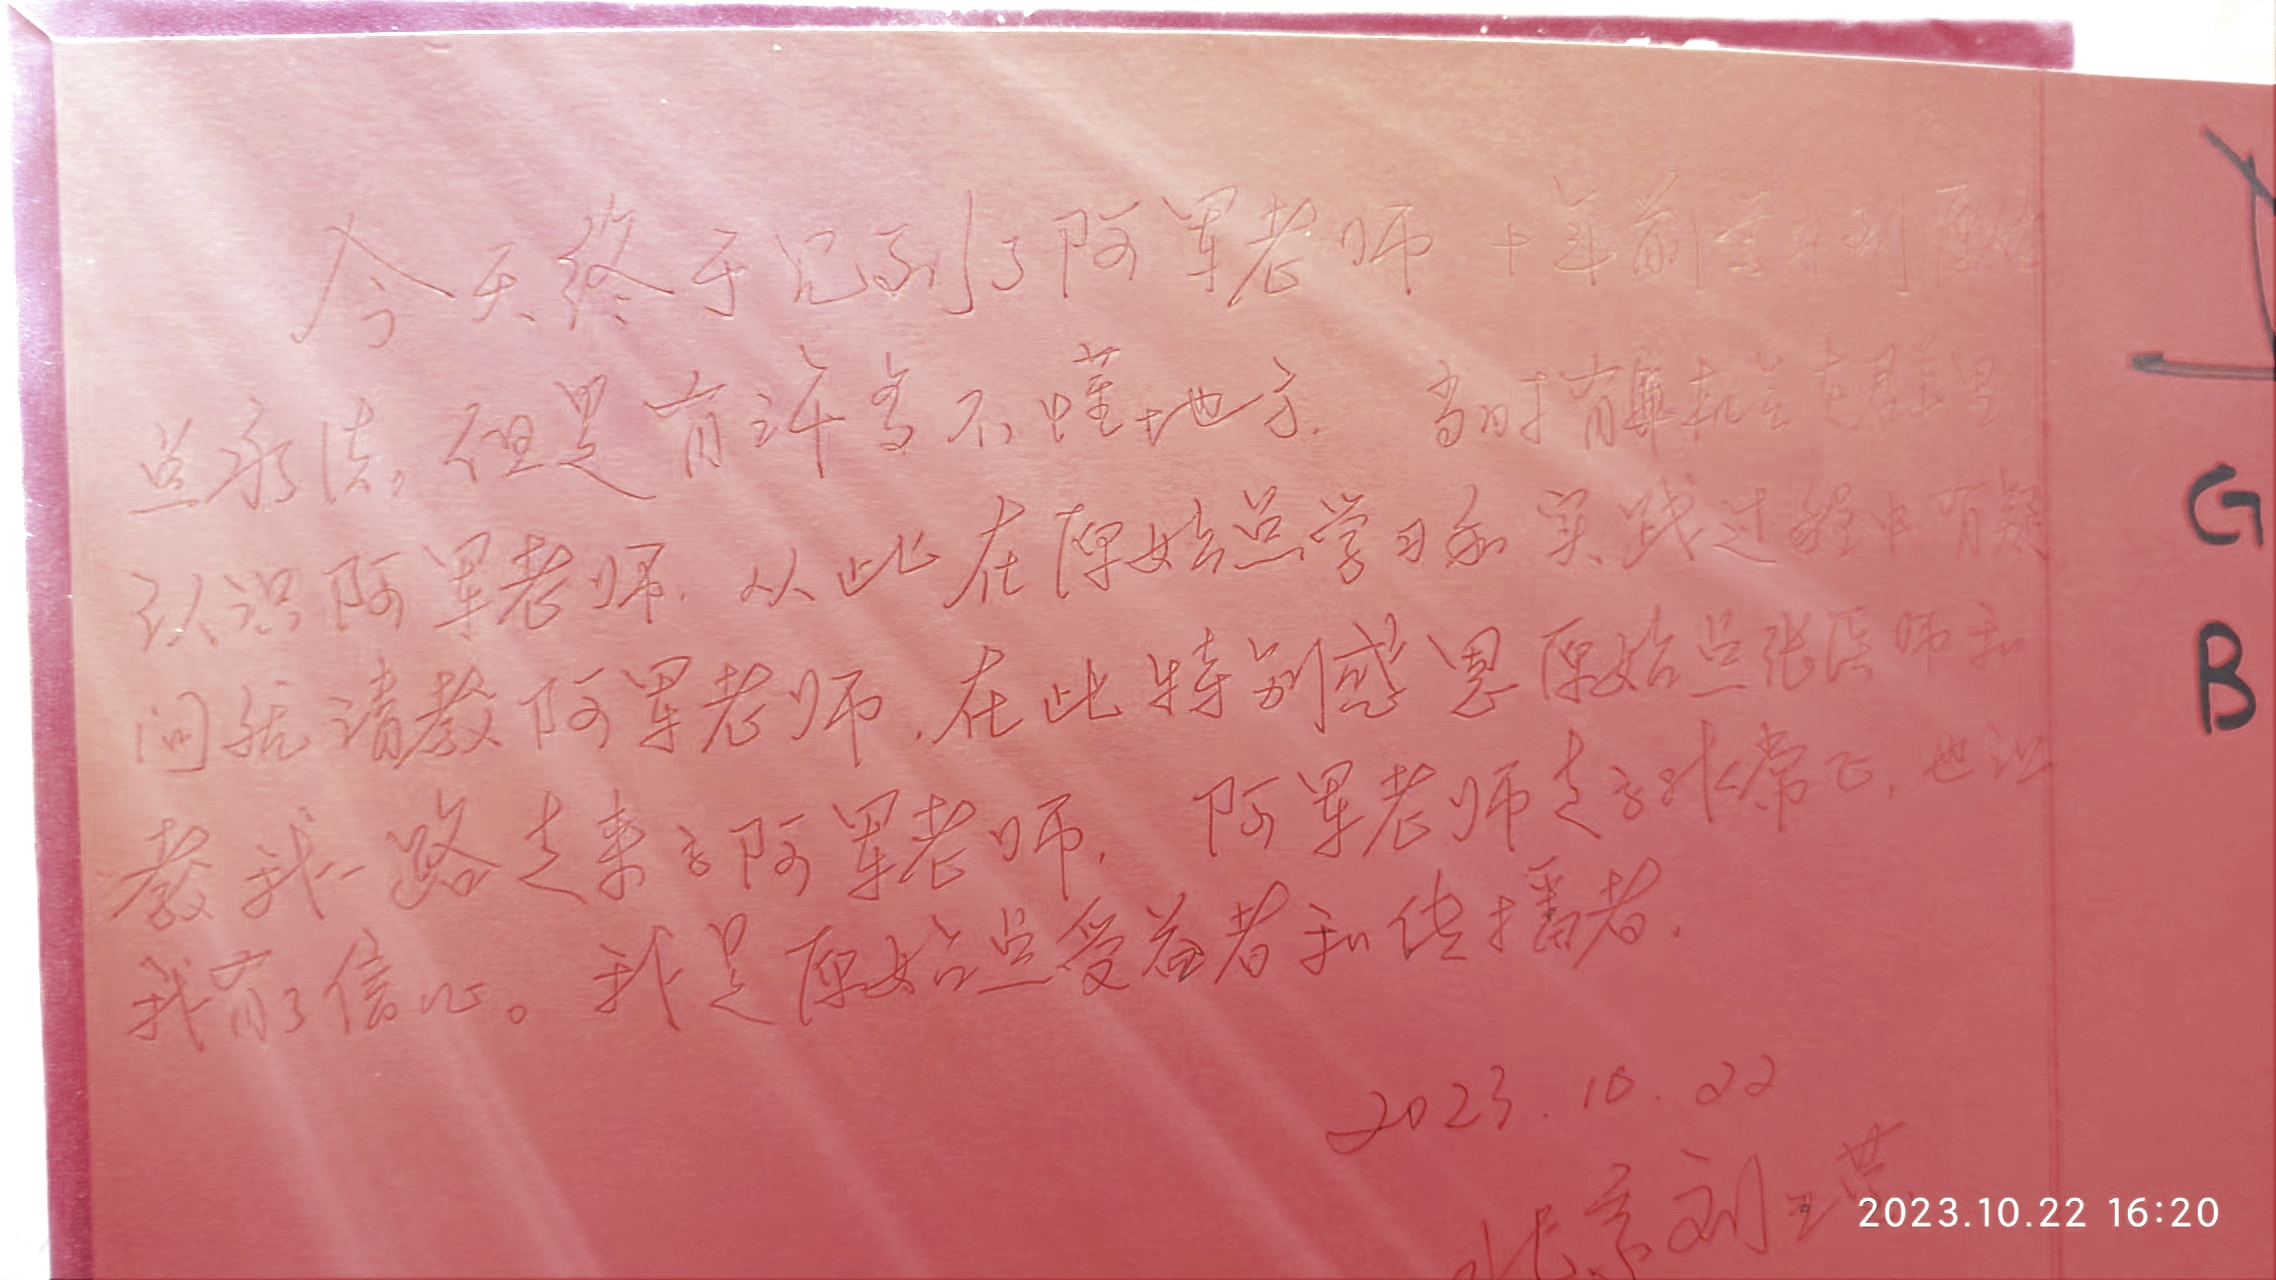 今天终于见到了阿军老师 十年前学习到原始
点疗法,但是有许多不懂地方. 当时有幸机会在群里
认识阿军老师. 从此在原始点学习和实践过程中有疑
问就请教阿军老师.在此特别感恩原始点张医师和
教我一路走来的阿军老师. 阿军老师走的非常正,也让
我有了信心。我是原始点受益者和传播者.
2023.10.22
北京刘
G
B
2023.10.22 16:20